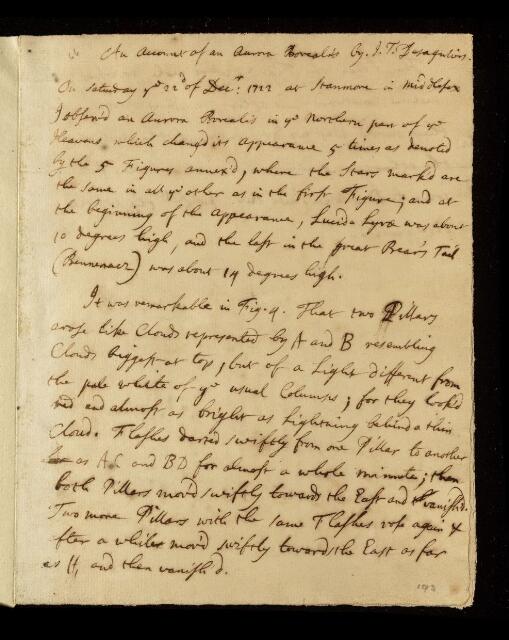 An Account of an Aurora Borealis by J. T. Desaguliers.
On Saturday ye 22d of Decr. 1722 at Stanmore in Middlesex
I observ'd an Aurora Borealis in ye Northern part of ye
Heavens, which chang'd its Appearance 5 times as denoted
by the 5 Figures annex'd, where the Stars mark'd are
the same in all ye other as in the first Figure; and at
the beginning of the Appearance, Lucida Lyræ was about
10 degrees high, and the last in the great Bear's Tail
(Bennenacz) was about 14 degrees high.
It was remarkable in Fig. 4. That two Pillars
arose like Clouds represented by A and B resembling
Clouds biggest at top; but of a Light different from
the pale white of ye usual Columns; for they look'd
red and almost as bright as Lightning behind a thin
Cloud. Flashes darted swiftly from one Pillar to another
as AC and BD for almost a whole minute; then
both Pillars mov'd swiftly towards the East and vanish'd.
Two more Pillars with the same Flashes rose again &
after a while mov'd swiftly towards the East as far
as H, and then vanish'd.